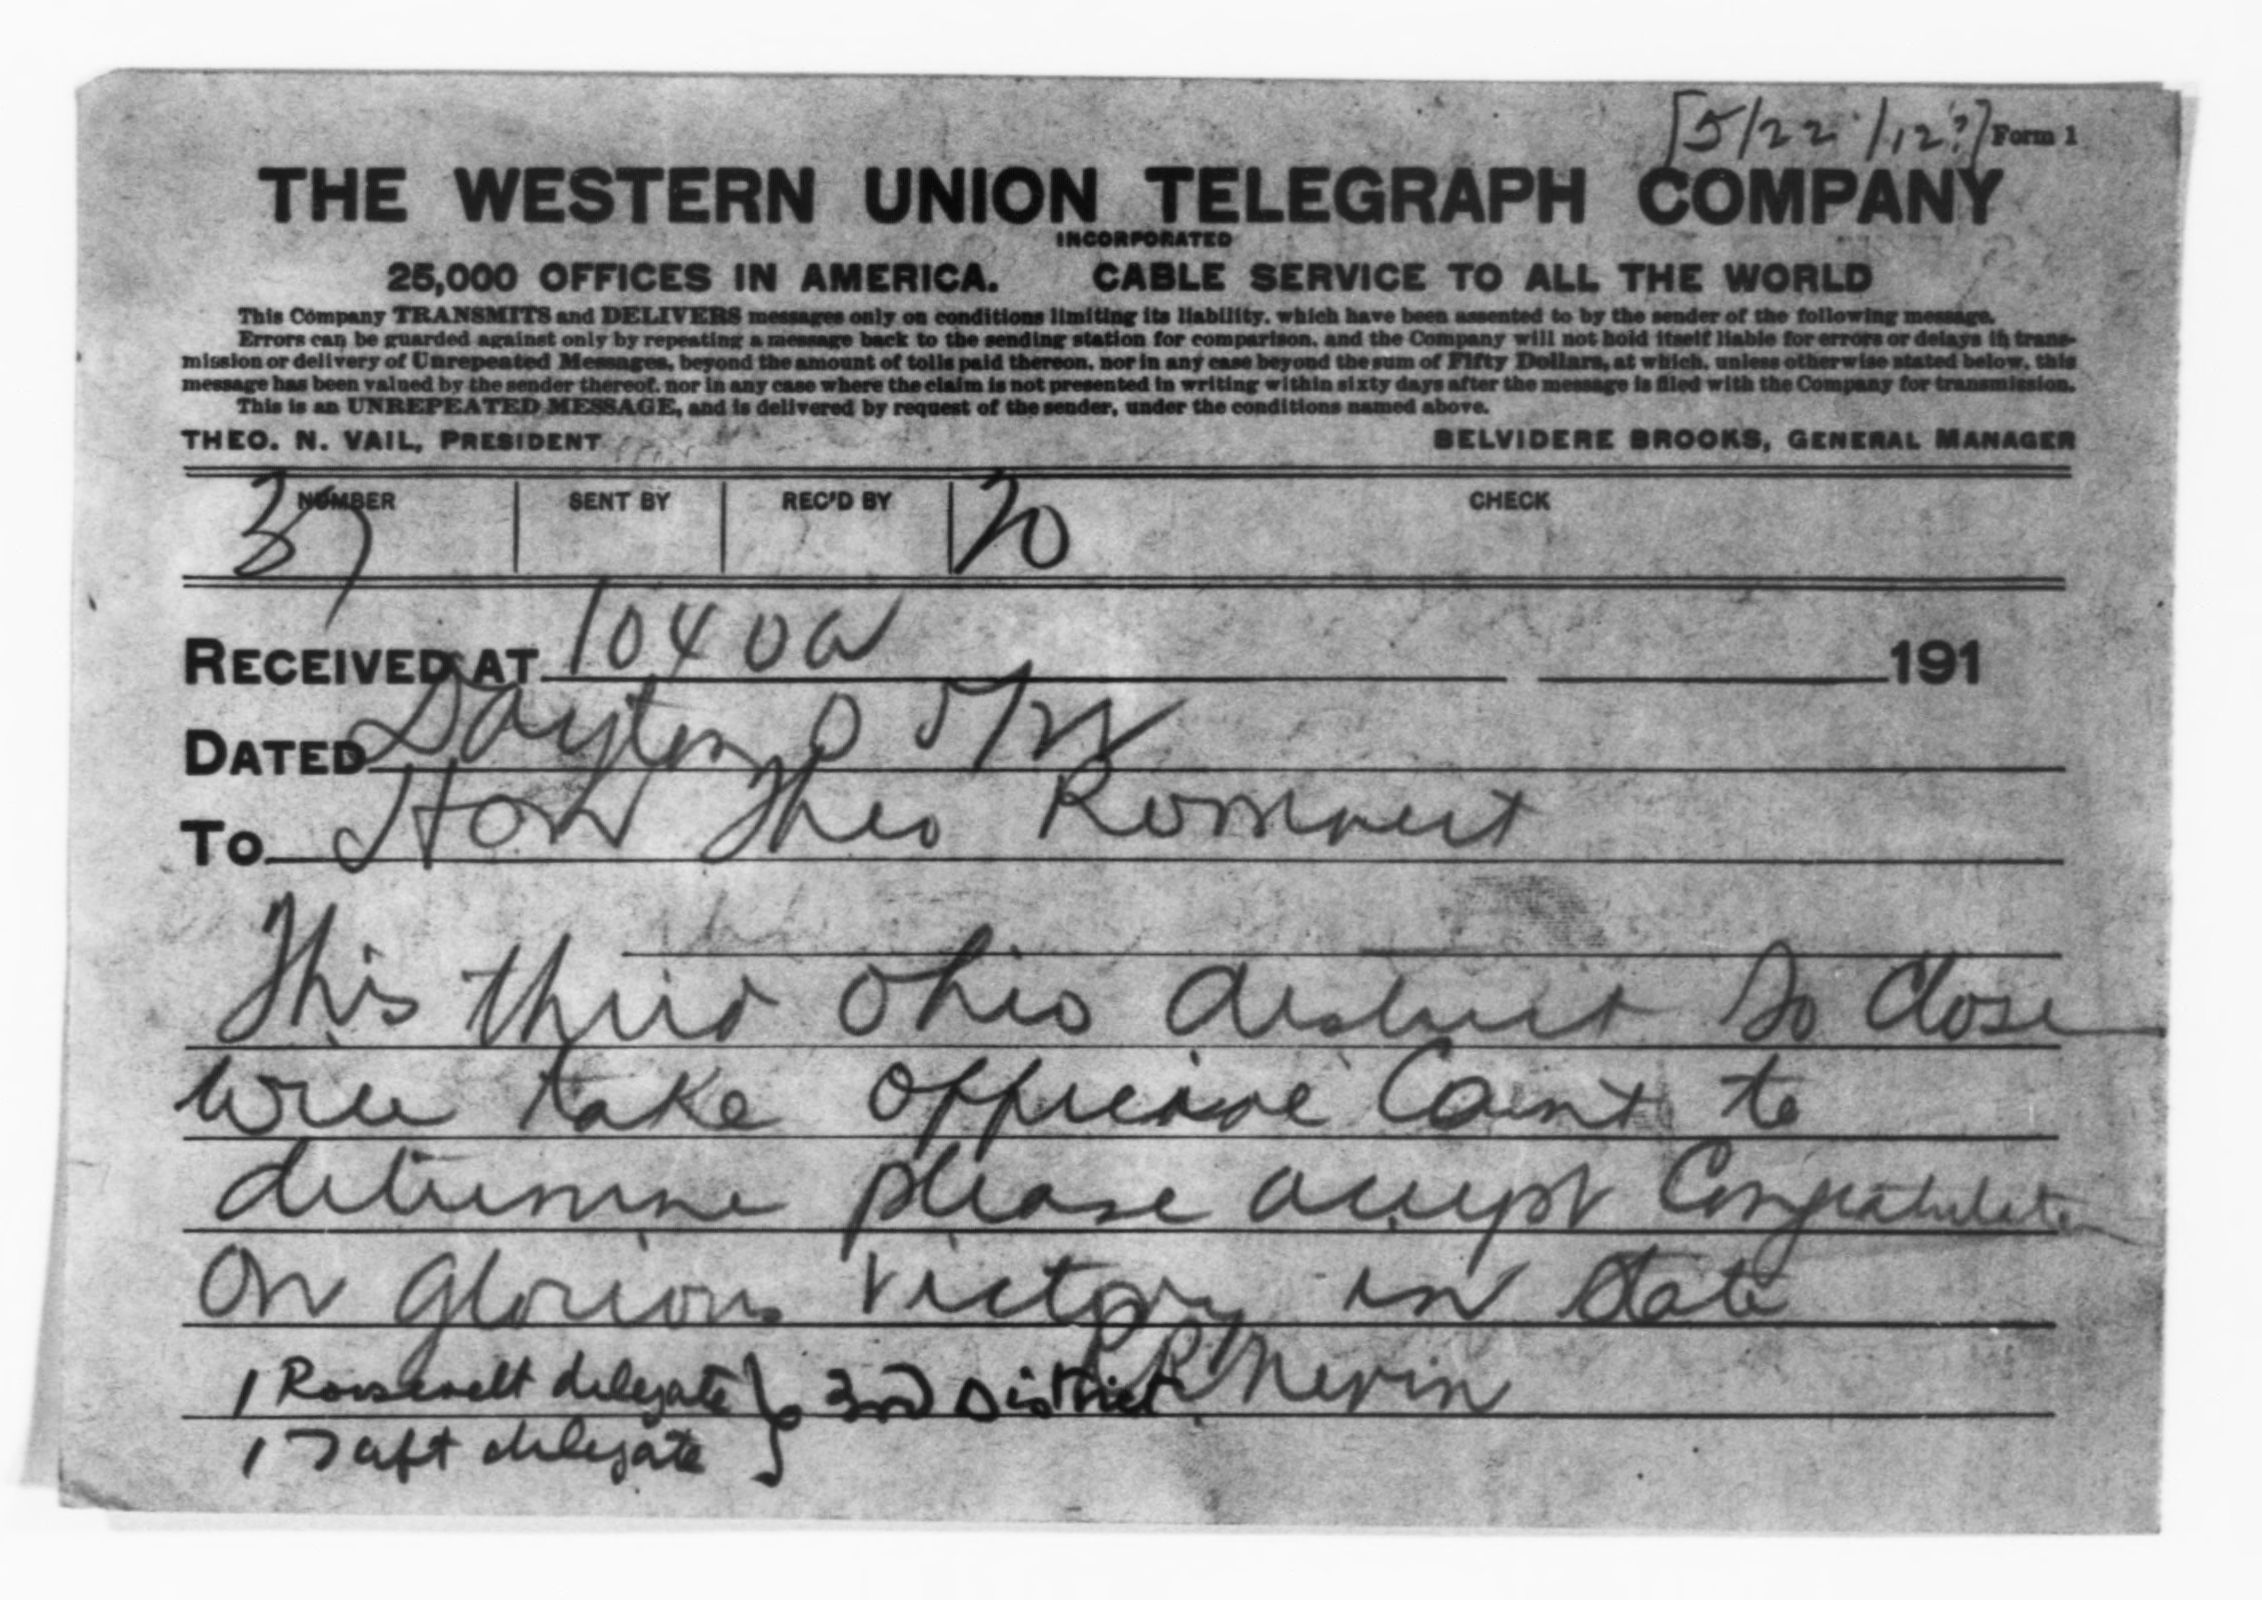 [5/22/12?] Form 1
THE WESTERN UNION TELEGRAPH COMPANY
INCORPORATED
25,000 OFFICES IN AMERICA. CABLE SERVICE TO ALL THE WORLD
This Company TRANSMITS and DELIVERS messages only on conditions limiting its liability, which have been assented to by the sender of the following message.
Errors can be guarded against only by repeating a message back to the sending station for comparison, and the Company will not hold itself liable for errors or delays in trans-
mission or delivery of Unrepeated Messages, beyond the amount of tolls paid thereon, nor in any case beyond the sum of Fifty Dollars, at which, unless otherwise stated below, this
message has been valued by the sender thereof, nor in any case where the claim is not presented in writing within sixty days after the message is filed with the Company for transmission.
This is an UNREPEATED MESSAGE, and is delivered by request of the sender, under the conditions named above.
THEO. N. VAIL, PRESIDENT BELVIDERE BROOKS, GENERAL MANAGER
NUMBER SENT BY REC'D BY CHECK
37 20
RECEIVED AT 1040a 191
DATED Dayton O 5/22
To Hon Theo Roosevelt
This third Ohio district so close
will take official Count to
determine please accept Congratulation
on glorious victory in state
R R Nevin
1 Roosevelt delegate } 3rd District
1 Taft delegate